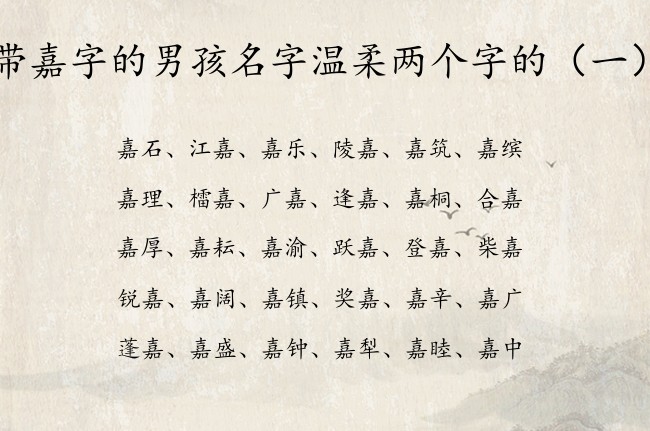 带嘉字的男孩名字温柔两个字的（一）
嘉石、江嘉、嘉乐、陵嘉、嘉筑、嘉缤
嘉理、檑嘉、广嘉、逢嘉、嘉桐、合嘉
嘉厚、嘉耘、嘉渝、跃嘉、登嘉、柴嘉
锐嘉、嘉阔、嘉镇、奖嘉、嘉辛、嘉广
蓬嘉、嘉盛、嘉钟、嘉犁、嘉睦、嘉中